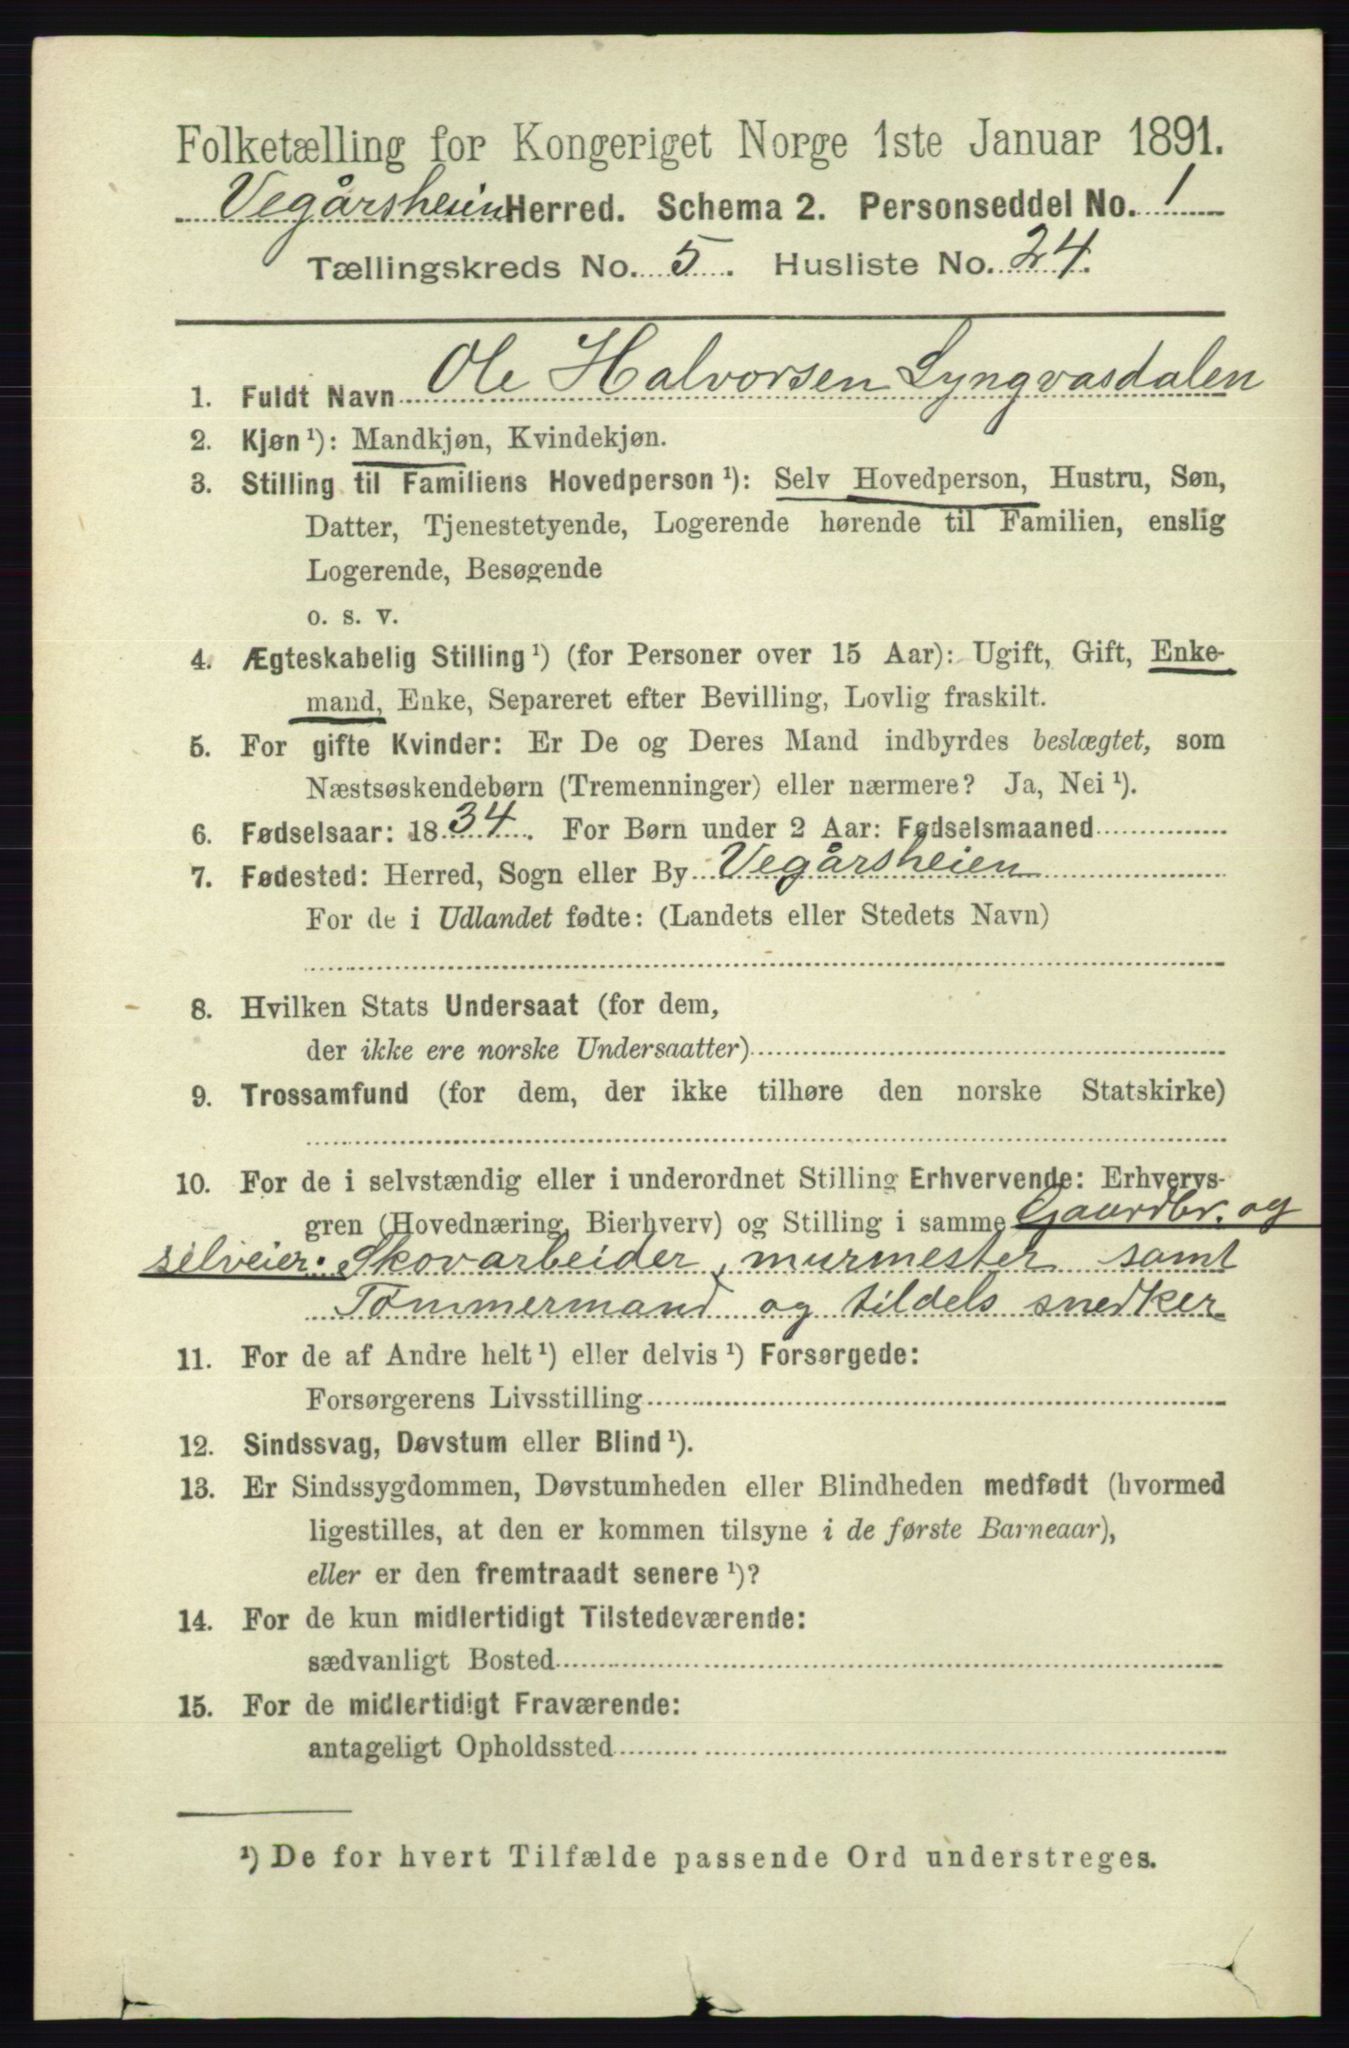 Folketælling for Kongeriget Norge 1ste Januar 1891.
Vegårsheien Herred. Schema 2. Personseddel No. 1
Tællingskreds No. 5. Husliste No. 24.
1. Fuldt Navn Ole Halvorsen Lyngvasdalen
2. Kjøn ¹): Mandkjøn, Kvindekjøn.
3. Stilling til Familiens Hovedperson ¹): Selv Hovedperson, Hustru, Søn,
Datter, Tjenestetyende, Logerende hørende til Familien, enslig
Logerende, Besøgende
o. s. v.
4. Ægteskabelig Stilling ¹) (for Personer over 15 Aar): Ugift, Gift, Enke-
mand, Enke, Separeret efter Bevilling, Lovlig fraskilt.
5. For gifte Kvinder: Er De og Deres Mand indbyrdes beslægtet, som
Næstsøskendebørn (Tremenninger) eller nærmere? Ja, Nei ¹).
6. Fødselsaar: 1834. For Børn under 2 Aar: Fødselsmaaned
7. Fødested: Herred, Sogn eller By Vegårsheien
For de i Udlandet fødte: (Landets eller Stedets Navn)
8. Hvilken Stats Undersaat (for dem,
der ikke ere norske Undersaatter)
9. Trossamfund (for dem, der ikke tilhøre den norske Statskirke)
10. For de i selvstændig eller i underordnet Stilling Erhvervende: Erhvervs-
gren (Hovednæring, Bierhverv) og Stilling i samme Gaardbr. og
selveier. Skovarbeider, murmester samt
Tømmermand og tildels snedker
11. For de af Andre helt ¹) eller delvis ¹) Forsørgede:
Forsørgerens Livsstilling
12. Sindssvag, Døvstum eller Blind ¹).
13. Er Sindssygdommen, Døvstumheden eller Blindheden medfødt (hvormed
ligestilles, at den er kommen tilsyne i de første Barneaar),
eller er den fremtraadt senere ¹)?
14. For de kun midlertidigt Tilstedeværende:
sædvanligt Bosted
15. For de midlertidigt Fraværende:
antageligt Opholdssted
¹) De for hvert Tilfælde passende Ord understreges.